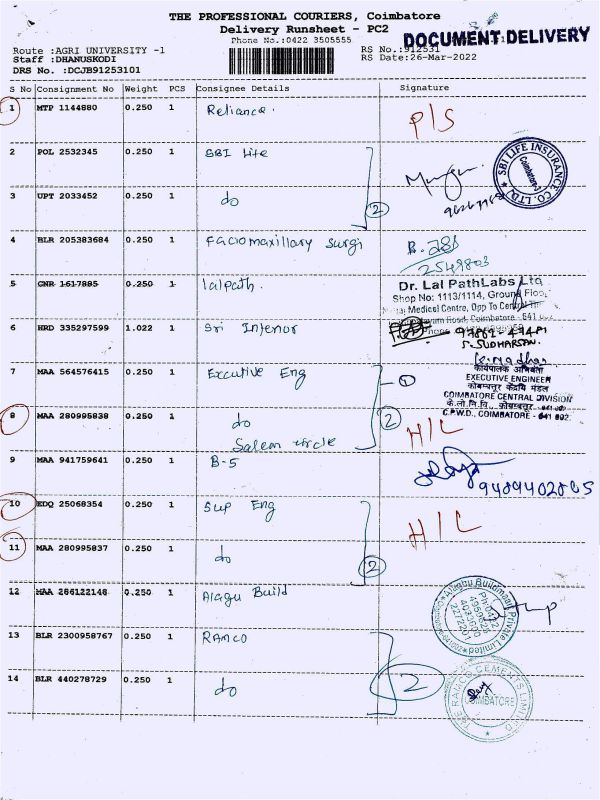 THE PROFESSIONAL COURIERS, Coimbatore
Delivery Runsheet - PC2
Phone No.:0422 3505555
DOCUMENT DELIVERY
Route :AGRI UNIVERSITY -1
RS No.:912531
Staff :DHANUSKODI
RS Date:26-Mar-2022
DRS No. :DCJB91253101
S No Consignment No Weight PCS Consignee Details Signature
1 MTP 1144880 0.250 1 Reliance. P/S
2 POL 2532345 0.250 1 SBI Life
SBI LIFE INSURANCE CO. LTD.
Coimbatore-3
3 UPT 2033452 0.250 1 do 2
4 BLR 205383684 0.250 1 Faciomaxillary Surgi
2549803
5 GNR 1617885 0.250 1 lalpath.
Dr. Lal PathLabs Ltd
Shop No: 1113/1114, Ground Floor,
Medical Centre, Opp To Central
Road, Coimbatore - 641
Phone
6 HRD 335297599 1.022 1 Sri Interior
S. SUDHARSAN.
7 MAA 564576415 0.250 1 Excutive Eng 1
कार्यपालक अभियंता
EXECUTIVE ENGINEER
कोयम्बत्तूर केंद्रीय मंडल
COIMBATORE CENTRAL DIVISION
के.लो.नि.वि., कोयम्बत्तूर
C.P.W.D., COIMBATORE - 641 002.
8 MAA 280995838 0.250 1 do 2 H/L
Salem circle
9 MAA 941759641 0.250 1 B-5
9489402865
10 EDQ 25068354 0.250 1 Sup Eng H/L
11 MAA 280995837 0.250 1 do 2
12 MAA 286122148 0.250 1 Alagu Build
Alaghu Buildmaart Private Limited
13 BLR 2300958767 0.250 1 RAMCO
14 BLR 440278729 0.250 1 do 2
THE RAMCO CEMENTS LIMITED
COIMBATORE